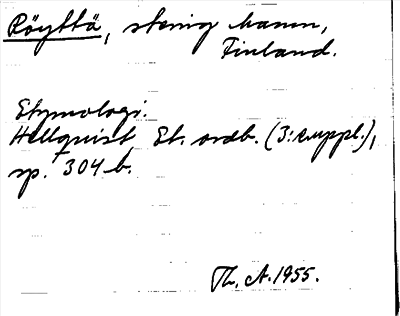 Pöyttä, stenig hamn,
Finland.
Etymologi.
Hellquist Et. ordb. (3:e uppl.),
sp. † 304 b.
Th. A. 1955.